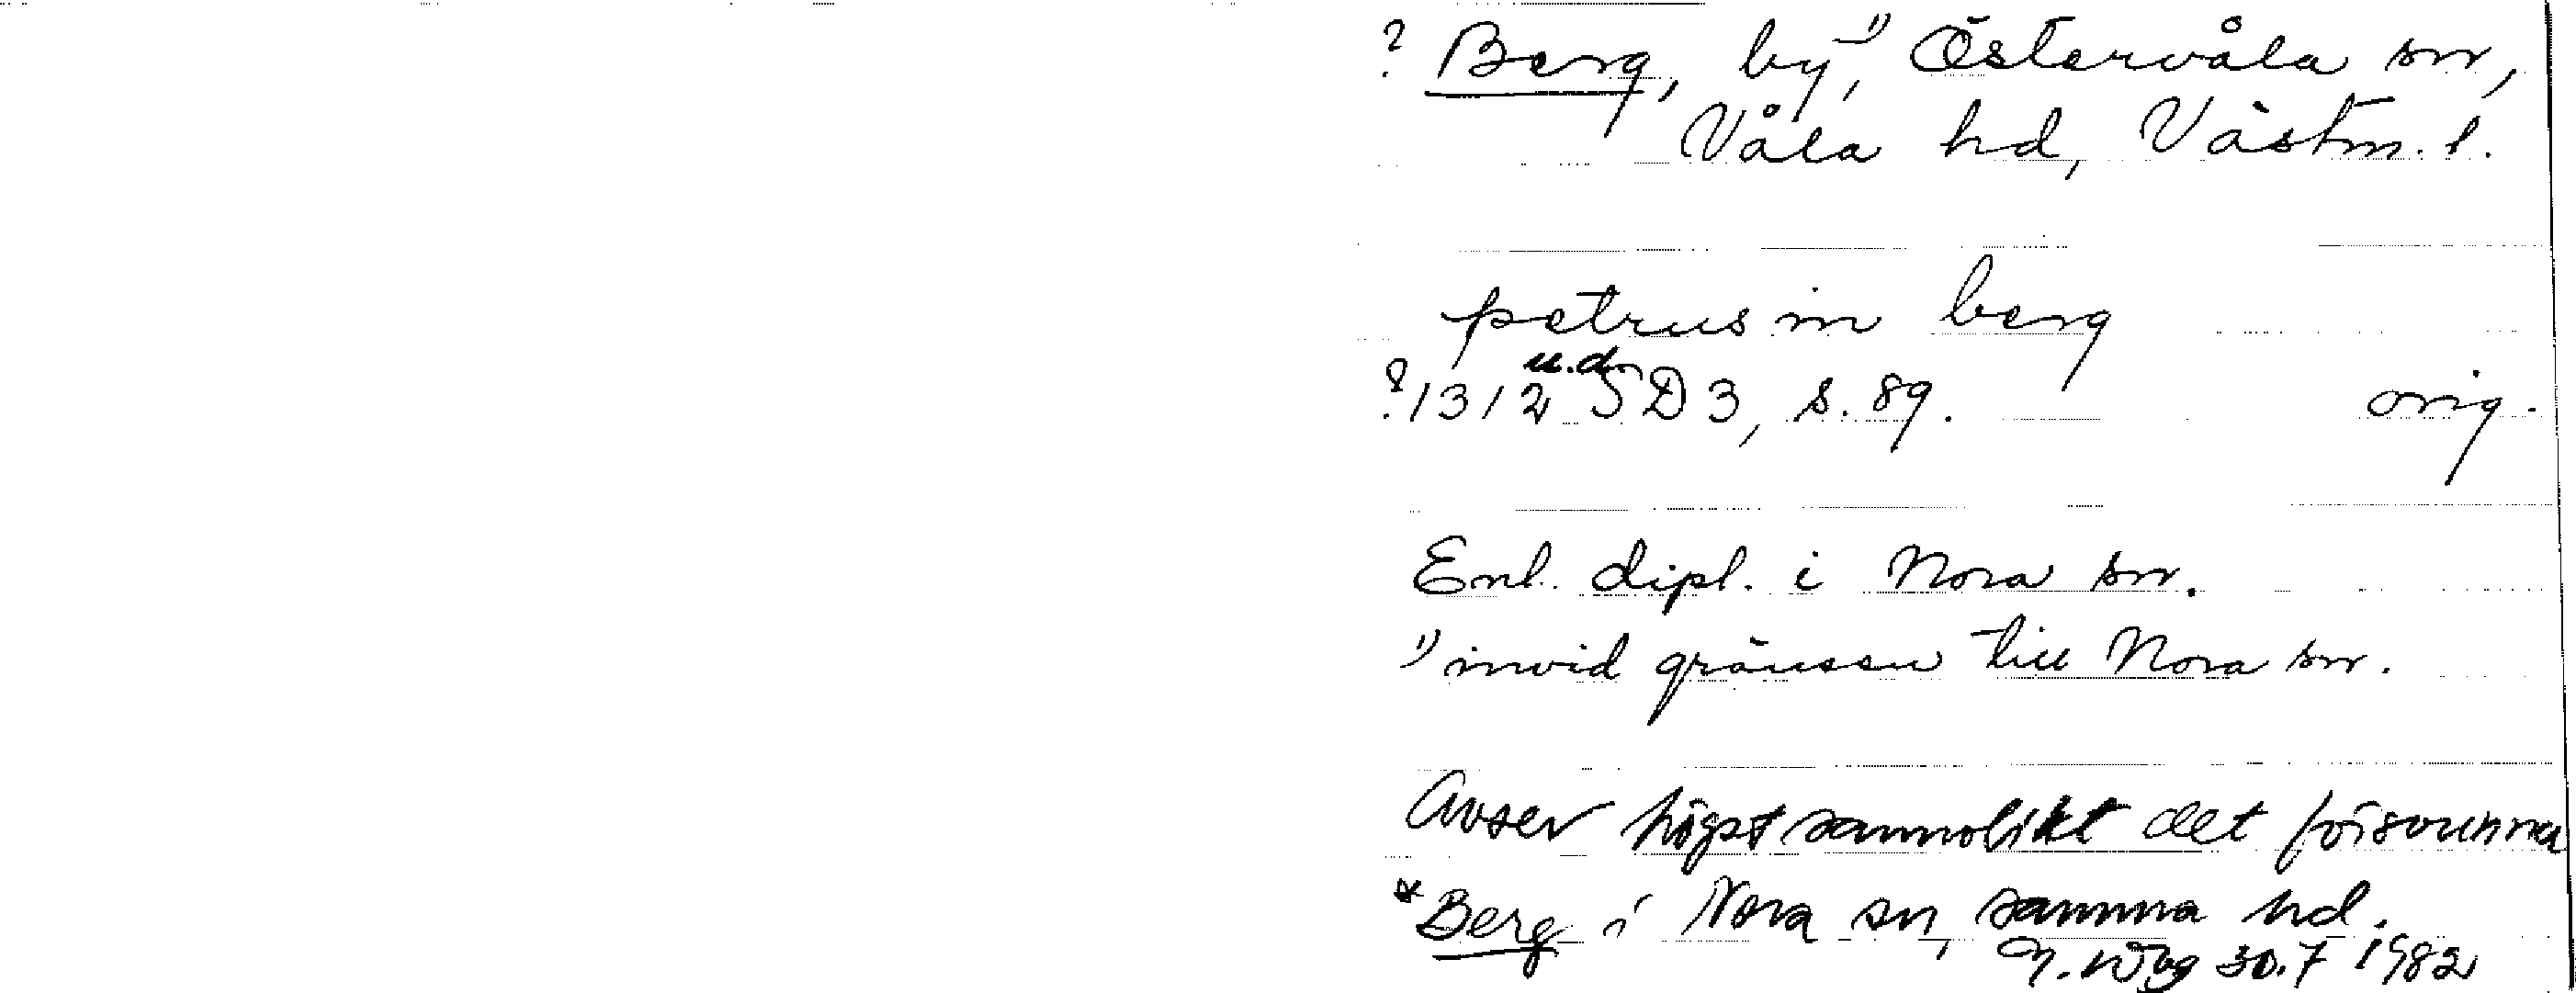 ? Berg, by,¹⁾ Östervåla sn,
Våla hd, Västm. l.
petrus in berg
? 1312 u.d. SD 3, s. 89. orig.
Enl. dipl. i Nora sn.
¹⁾ invid gränsen till Nora sn.
Avser högst sannolikt det försvunna
*Berg i Nora sn, samma hd.
30.7 1982